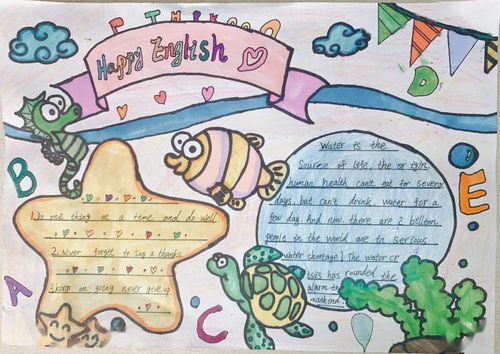 Happy English
B
A
C
D
E
1.Do one thing at a time and do well
2.Never forget to say a thanks.
3.keep on going never give up
Water is the
Source of life, the or igin,
human health can't eat for several
days, but can't drink water for a
few day. And now there are 2 billion
people in the world are in serious
water shortage! The water cr
isis has rounded the
alarm to
mankind!